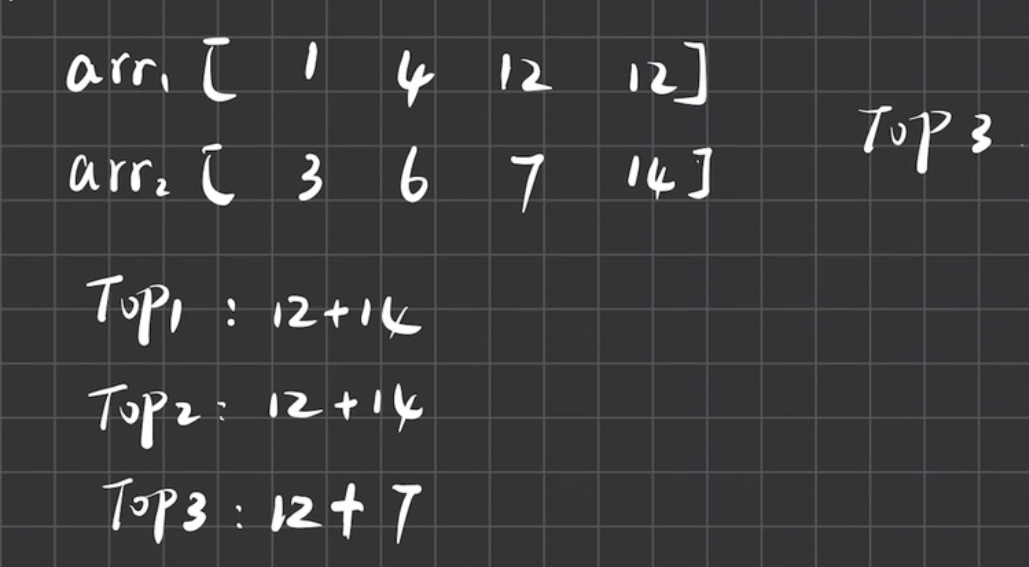 arr₁ [ 1 4 12 12]
Top 3
arr₂ [ 3 6 7 14]
Top1 : 12+14
Top2 : 12+14
Top3 : 12+7